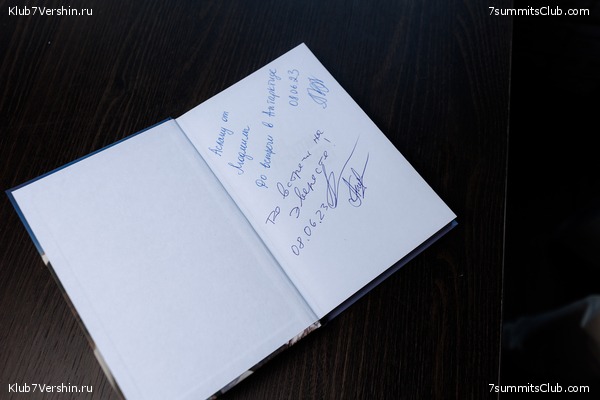 Klub7Vershin.ru
7summitsClub.com
Аслану от
Людмилы
До встречи в Антарктиде
08.06.23
До встречи на
Эвересте!
08.06.23
Klub7Vershin.ru
7summitsClub.com